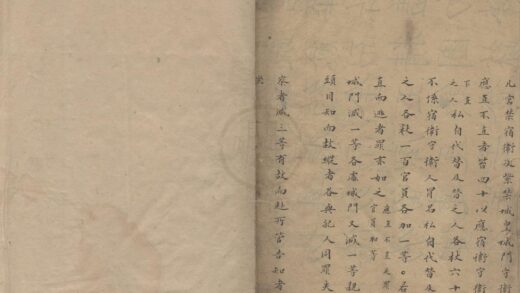 凡宮禁宿衛及紫禁城皇城門守衛
應直不直者笞四十以應宿衛守衛
下直之人私自代替及替之人各杖六十
不係宿衛守衛人冒名私自代替及
之人各杖一百官員各加一等。若
直而逃者罪亦如之應直不直之罪官員加等
城門減一等各處城門又減一等親
頭目知而故縱者各與犯人同罪失
察者減三等有故而赴所管告知者